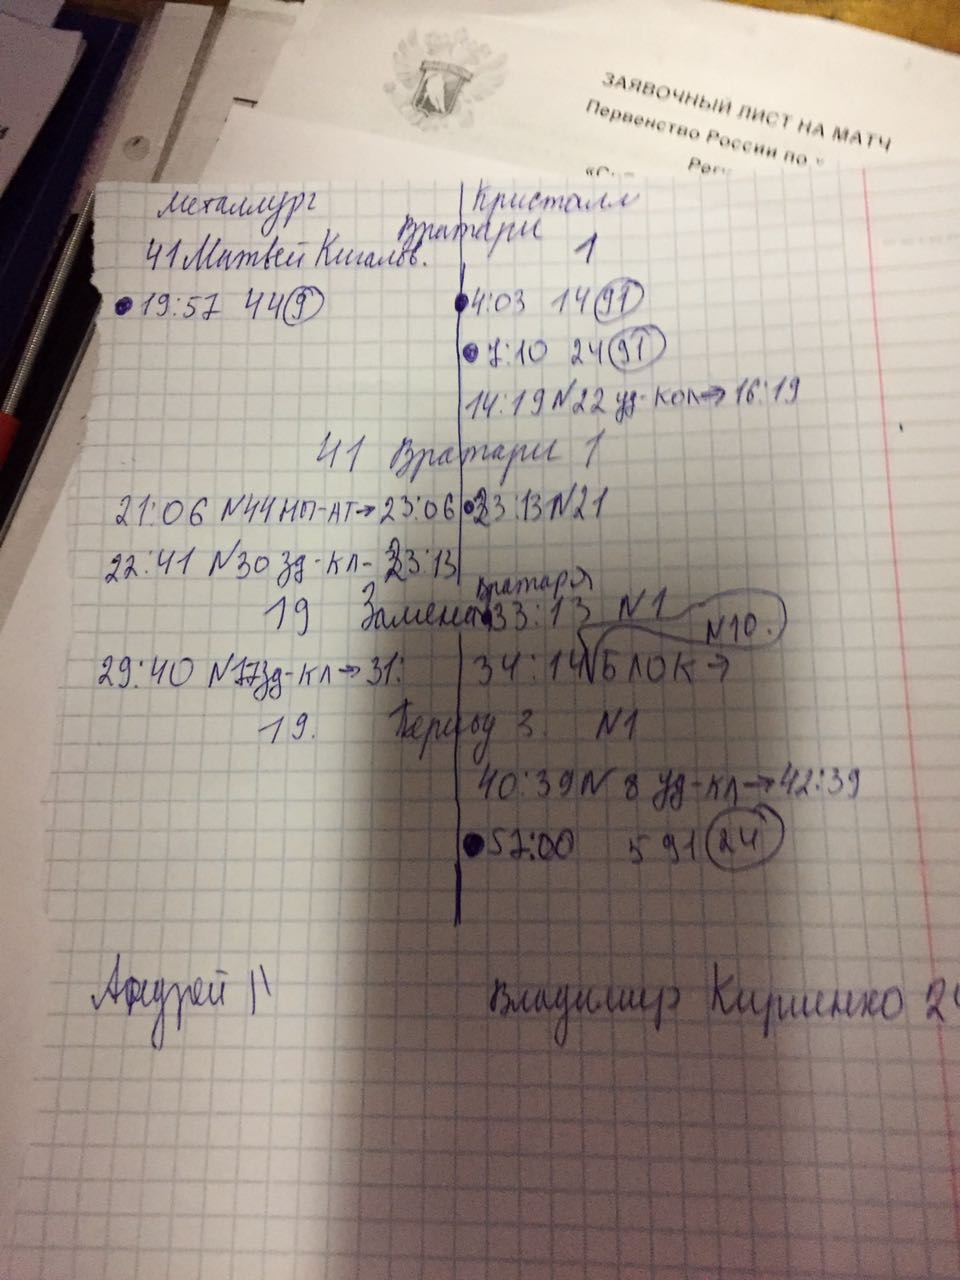 ЗАЯВОЧНЫЙ ЛИСТ НА МАТЧ
Первенство России по
Металлург Кристалл
Вратари
41 Матвей 1
19:57 44 9 4:03 14 91
7:10 24 91
14:19 N22 уд-кол→ 16:19
41 Вратари 1
21:06 N44 НП-АТ→ 23:06 23:13 N21
22:41 N30 зд-кл- 23:13
Вратаря
19 Замена 33:13 N1
N10.
29:40 N17 зд-кл→ 31: 34:14 N БЛОК→
19. Период 3. N1
40:39 N 8 уд-кл→ 42:39
57:00 5 91 24
Андрей 11 Владимир Кириенко